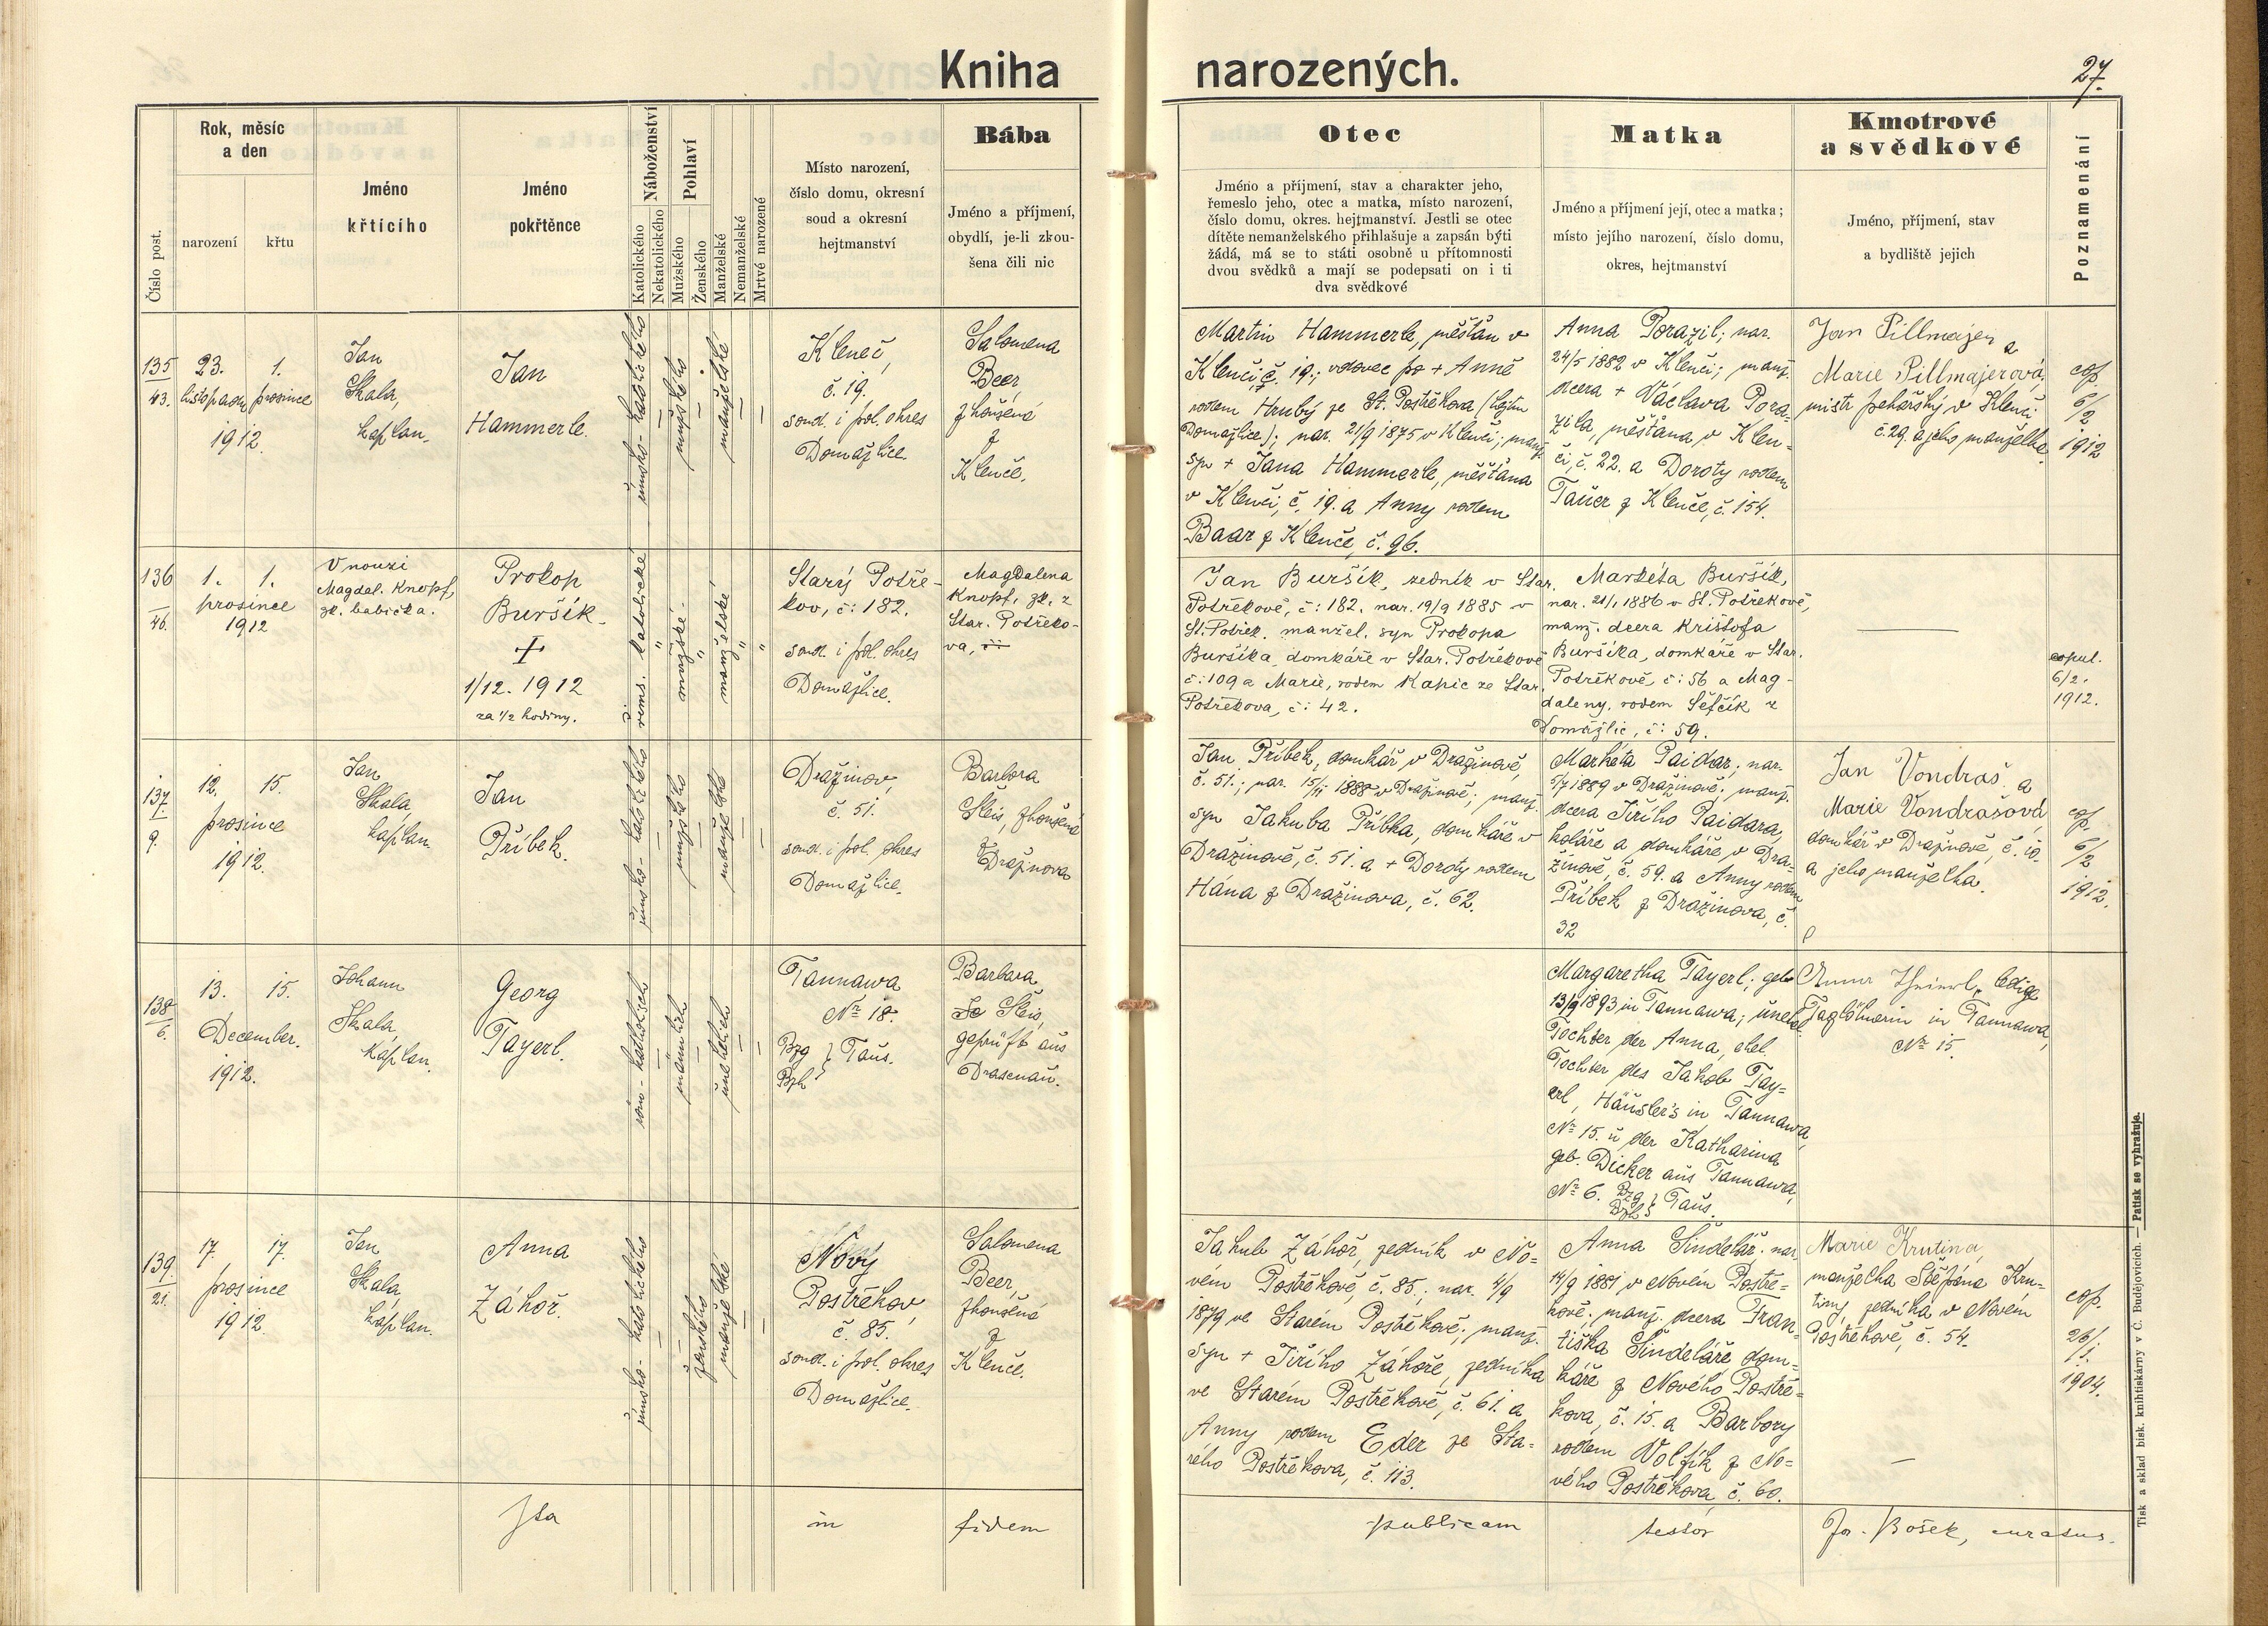 Kniha narozených.
27.
Číslo post.
Rok, měsíc
a den
narození
křtu
Jméno
křtícího
Jméno
pokřtěnce
Náboženství
Katolického
Nekatolického
Pohlaví
Mužského
Ženského
Manželské
Nemanželské
Mrtvé narozené
Místo narození,
číslo domu, okresní
soud a okresní
hejtmanství
Bába
Jméno a příjmení,
obydlí, je-li zkou-
šena čili nic
Otec
Jméno a příjmení, stav a charakter jeho,
řemeslo jeho, otec a matka, místo narození,
číslo domu, okres. hejtmanství. Jestli se otec
dítěte nemanželského přihlašuje a zapsán býti
žádá, má se to státi osobně u přítomnosti
dvou svědků a mají se podepsati on i ti
dva svědkové
Matka
Jméno a příjmení její, otec a matka;
místo jejího narození, číslo domu,
okres, hejtmanství
Kmotrové
a svědkové
Jméno, příjmení, stav
a bydliště jejich
Poznamenání
135
43.
23. 1.
listopadu prosince
1912.
Jan
Skala,
kaplan.
Jan
Hammerle.
římsko-katolického
mužského
manželské
Kleneč,
č. 19.
soud. i pol. okres
Domažlice.
Salomena
Beer
zkoušená
z
Klenče.
Martin Hammerle, měšťan v
Klenči, č. 19.; vdovec po + Anně
rodem Hrubý ze St. Postřekova (hejtm
Domažlice); nar. 21/9 1875 v Klenči; manž.
syn + Jana Hammerle, měšťana
v Klenči, č. 19. a Anny rodem
Baar z Klenče, č. 96.
Anna Porazil; nar.
24/5 1882 v Klenči; manž.
dcera + Václava Pora-
zila, měšťana v Klen-
či, č. 22. a Doroty rodem
Tauer z Klenče, č. 154.
Jan Pillmajer a
Marie Pillmajerová,
mistr pekařský v Klenči
č. 29. a jeho manželka.
cop.
6/2
1912
136
46.
1. 1.
prosince
1912
V nouzi
Magdal. Knopf,
zk. babička.
Prokop
Buršík.
+
1/12. 1912
za 1/2 hodiny.
řims. katolické
mužské
manželské
Starý Potře-
kov, č: 182.
soud. i pol. okres
Domažlice.
Magdalena
Knopf, zk. z
Star. Potřeko-
va,
Jan Buršík, zedník v Star.
Potřekově, č: 182. nar. 19/9 1885 v
St. Potřek. manžel. syn Prokopa
Buršíka, domkáře v Star. Potřekově
č: 109 a Marie, rodem Kapic ze Star.
Potřekova, č: 42.
Markéta Buršík,
nar. 21/1 1886 v St. Potřekově,
manž. dcera Krištofa
Buršíka, domkáře v Star.
Potřekově, č: 56 a Mag-
daleny, rodem Šefčík z
Domažlic, č: 59.
copul.
6/2.
1912.
137
9.
12. 15.
prosince
1912.
Jan
Skala,
kaplan.
Jan
Příbek.
římsko-katolického
mužského
manželské
Dražinov,
č. 51.
soud. i pol. okres
Domažlice.
Barbora
Sleis, zkoušená
z
Dražinova
Jan Příbek, domkář v Dražinově,
č. 51.; nar. 15/11 1888 v Dražinově; manž.
syn Jakuba Příbka, domkáře v
Dražinově, č. 51. a + Doroty rodem
Hána z Dražinova, č. 62.
Markéta Paidar; nar.
5/7 1889 v Dražinově; manž.
dcera Jiřího Paidara,
koláře a domkáře, v Dra-
žinově, č. 59. a Anny rodem
Příbek z Dražinova, č.
32
Jan Vondraš a
Marie Vondrašová,
domkář v Dražinově, č. 10.
a jeho manželka.
cop.
6/2
1912.
138
6.
13. 15.
December.
1912.
Johann
Skala,
Kaplan.
Georg
Tayerl.
röm-katholisch
männlich
unehelich
Tannawa
No 18.
Bzg } Taus.
Bzh
Barbara
Sleis,
geprüft aus
Drasenau.
Margaretha Tayerl; geb.
13/9 1893 in Tannawa; unehel.
Tochter der Anna, ehel.
Tochter des Jakob Tay=
erl, Häusler's in Tannawa,
No 15. u der Katharina
geb. Dicker aus Tannawa,
No 6. Bzg } Taus.
Bzh
Anna Theierl, ledige
Taglöhnerin in Tannawa,
No 15.
139.
21.
17. 17.
prosince
1912
Jan
Skala,
kaplan.
Anna
Záhoř.
římsko-katolického
ženského
manželské
Nový
Postřekov,
č. 85.
soud. i pol. okres
Domažlice.
Salomena
Beer,
zkoušená
z
Klenče.
Jakub Záhoř, zedník v No=
vém Postřekově, č. 85.; nar. 4/9
1879 ve Starém Postřekově; manž.
syn + Jiřího Záhoře, zedníka
ve Starém Postřekově, č. 61. a
Anny rodem Eder ze Sta=
rého Postřekova, č. 113.
Anna Šindelář, nar.
14/9 1881 v Novém Postře=
kově; manž. dcera Fran=
tiška Šindeláře, dom=
káře z Nového Postře=
kova, č. 15. a Barbory
rodem Volfík z No=
vého Postřekova, č. 60.
Marie Krutina,
manželka Štěpána Kru=
tiny, zedníka v Novém
Postřekově, č. 54.
cop.
26/1.
1904.
Ita in fidem publicam testor Jos. Bošek, curatus.
Tisk a sklad bisk. knihtiskárny v Č. Budějovicích. — Patisk se vyhražuje.